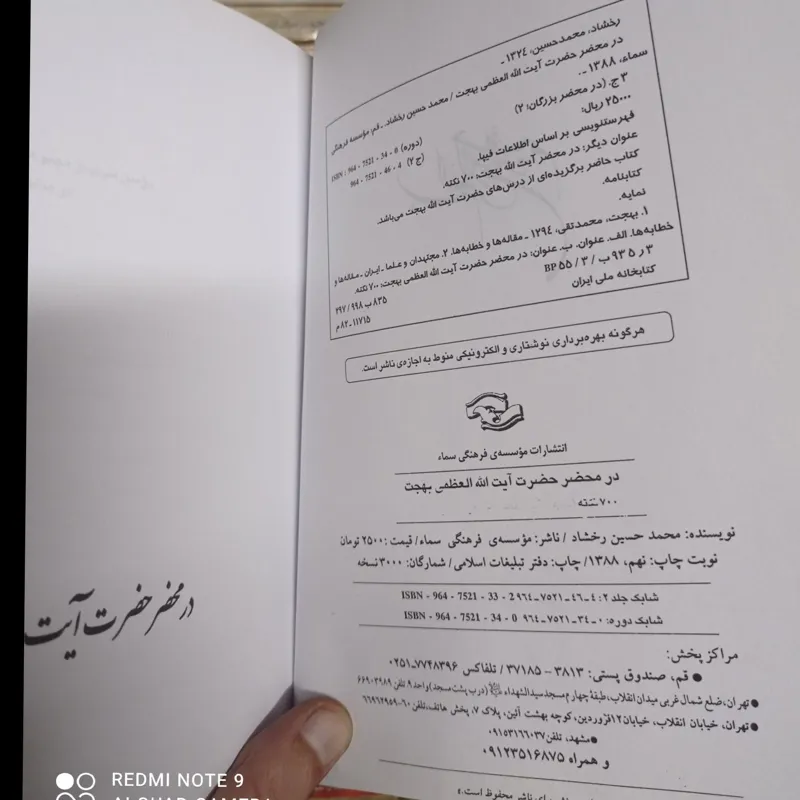 رخشاد، محمدحسین، ۱۳۲۴ -
در محضر حضرت آیت الله العظمی بهجت / محمد حسین رخشاد. ـ قم: مؤسسه فرهنگی
سماء، ۱۳۸۸ - .
۳ ج. (در محضر بزرگان: ۲)
۲۵۰۰۰ ریال:
ISBN : 964 - 7521 - 34 - 0 (دوره)
964 - 7521 - 46 - 4 (ج ۲)
فهرستنویسی بر اساس اطلاعات فیپا.
عنوان دیگر: در محضر آیت الله بهجت: ۷۰۰ نکته.
کتاب حاضر برگزیده‌ای از درس‌های حضرت آیت الله بهجت می‌باشد.
کتابنامه.
نمایه.
۱. بهجت، محمدتقی، ۱۲۹٤ ـ مقاله‌ها و خطابه‌ها. ۲. مجتهدان و علما ـ ایران ـ مقاله‌ها و
خطابه‌ها. الف. عنوان. ب. عنوان: در محضر حضرت آیت الله العظمی بهجت: ۷۰۰ نکته.
۳ ر ۹۳۵ ب / ۳ / ۵۵ BP
۸۳۵ ب ۹۹۸ / ۲۹۷
کتابخانه ملی ایران
۱۱۷۱۵ ـ ۸۲ م
هرگونه بهره‌برداری نوشتاری و الکترونیکی منوط به اجازه‌ی ناشر است.
انتشارات مؤسسه‌ی فرهنگی سماء
در محضر حضرت آیت الله العظمی بهجت
۷۰۰ نکته
نویسنده: محمد حسین رخشاد / ناشر: مؤسسه‌ی فرهنگی سماء / قیمت: ۲۵۰۰ تومان
نوبت چاپ: نهم، ۱۳۸۸/ چاپ: دفتر تبلیغات اسلامی / شمارگان: ۳۰۰۰ نسخه
شابک جلد ۲: ٤-٤٦-۷۵۲۱-۹٦٤ ISBN - 964 - 7521 - 33 - 2
شابک دوره: ۰-۳٤-۷۵۲۱-۹٦٤ ISBN - 964 - 7521 - 34 - 0
مراکز پخش:
● قم، صندوق پستی: ۳۸۱۳ - ۳۷۱۸۵ / تلفاکس ۷۷۴۸۳۹۶-۰۲۵۱
● تهران، ضلع شمال غربی میدان انقلاب، طبقهٔ چهارم مسجد سیدالشهداء (درب پشت مسجد) واحد ۹ تلفن ۶۶۹۰۳۹۸۹
● تهران، خیابان انقلاب، خیابان ۱۲ فروردین، کوچه بهشت آئین، پلاک ۷، پخش هاتف، تلفن ۶۰-۶۶۹۶۲۹۵۹
● مشهد، تلفن ۰۹۱۵۳۱۶۶۰۳۷
و همراه ۰۹۱۲۳۵۱۶۸۷۵
برای ناشر محفوظ است. ●
در محضر حضرت آیت
REDMI NOTE 9
AI QUAD CAMERA